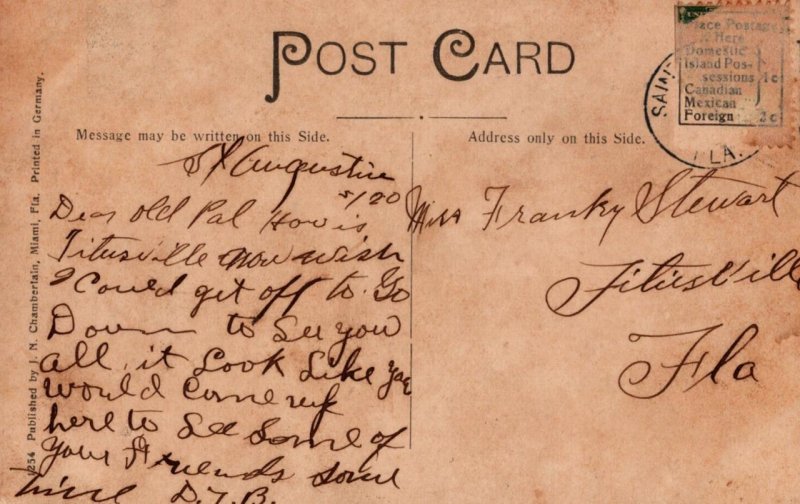 POST CARD
Message may be written on this Side.
Address only on this Side.
Place Postage
Here
Domestic
Island Pos-
sessions 1c
Canadian
Mexican
Foreign 2c
SAIN
FLA.
1254 Published by J. N. Chamberlain, Miami, Fla. Printed in Germany.
St Augustine
5/20
Dear old Pal How is
Titusville now wish
I Could get off to Go
Down to See you
all, it Look Like you
would Come up
here to See Some of
your Friends some
time D.T.B.
Miss Franky Stewart
Titusville
Fla